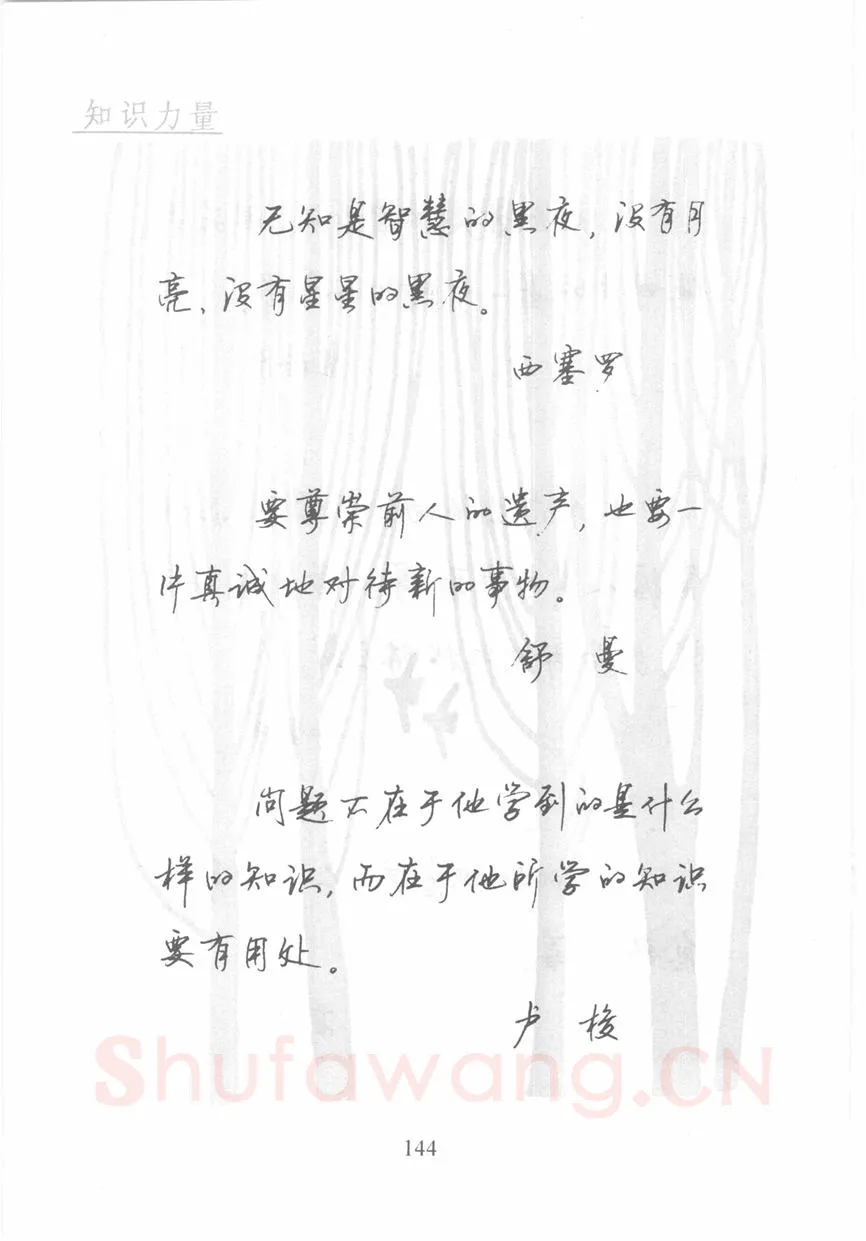 知识力量
无知是智慧的黑夜，没有月
亮、没有星星的黑夜。
西塞罗
要尊崇前人的遗产，也要一
片真诚地对待新的事物。
舒 曼
问题不在于他学到的是什么
样的知识，而在于他所学的知识
要有用处。
卢 梭
Shufawang.CN
144